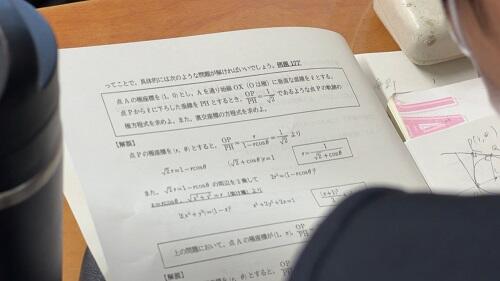 ってことで、具体的には次のような問題が解ければいいでしょう。例題 177
点 A の極座標を (1, 0) とし、A を通り始線 OX (O は極) に垂直な直線を ℓ とする。
点 P から ℓ に下ろした垂線を PH とするとき、OP/PH = 1/√2 であるような点 P の軌跡の
極方程式を求めよ。また、直交座標の方程式を求めよ。
【解説】
点 P の極座標を (r, θ) とすると、OP/PH = r/(1-rcosθ) = 1/√2 より
√2 r = 1-rcosθ (√2+cosθ)r=1 r = 1/(√2+cosθ)
また、√2 r = 1-rcosθ の両辺を 2 乗して 2r²=(1-rcosθ)²
x=rcosθ, √(x²+y²)=r より
2(x²+y²)=(1-x)² x²+2y²+2x=1 (x+1)²
上の問題において、点 A の極座標が (1, π), OP
【解説】
(r, θ) とすると、OP/PH =